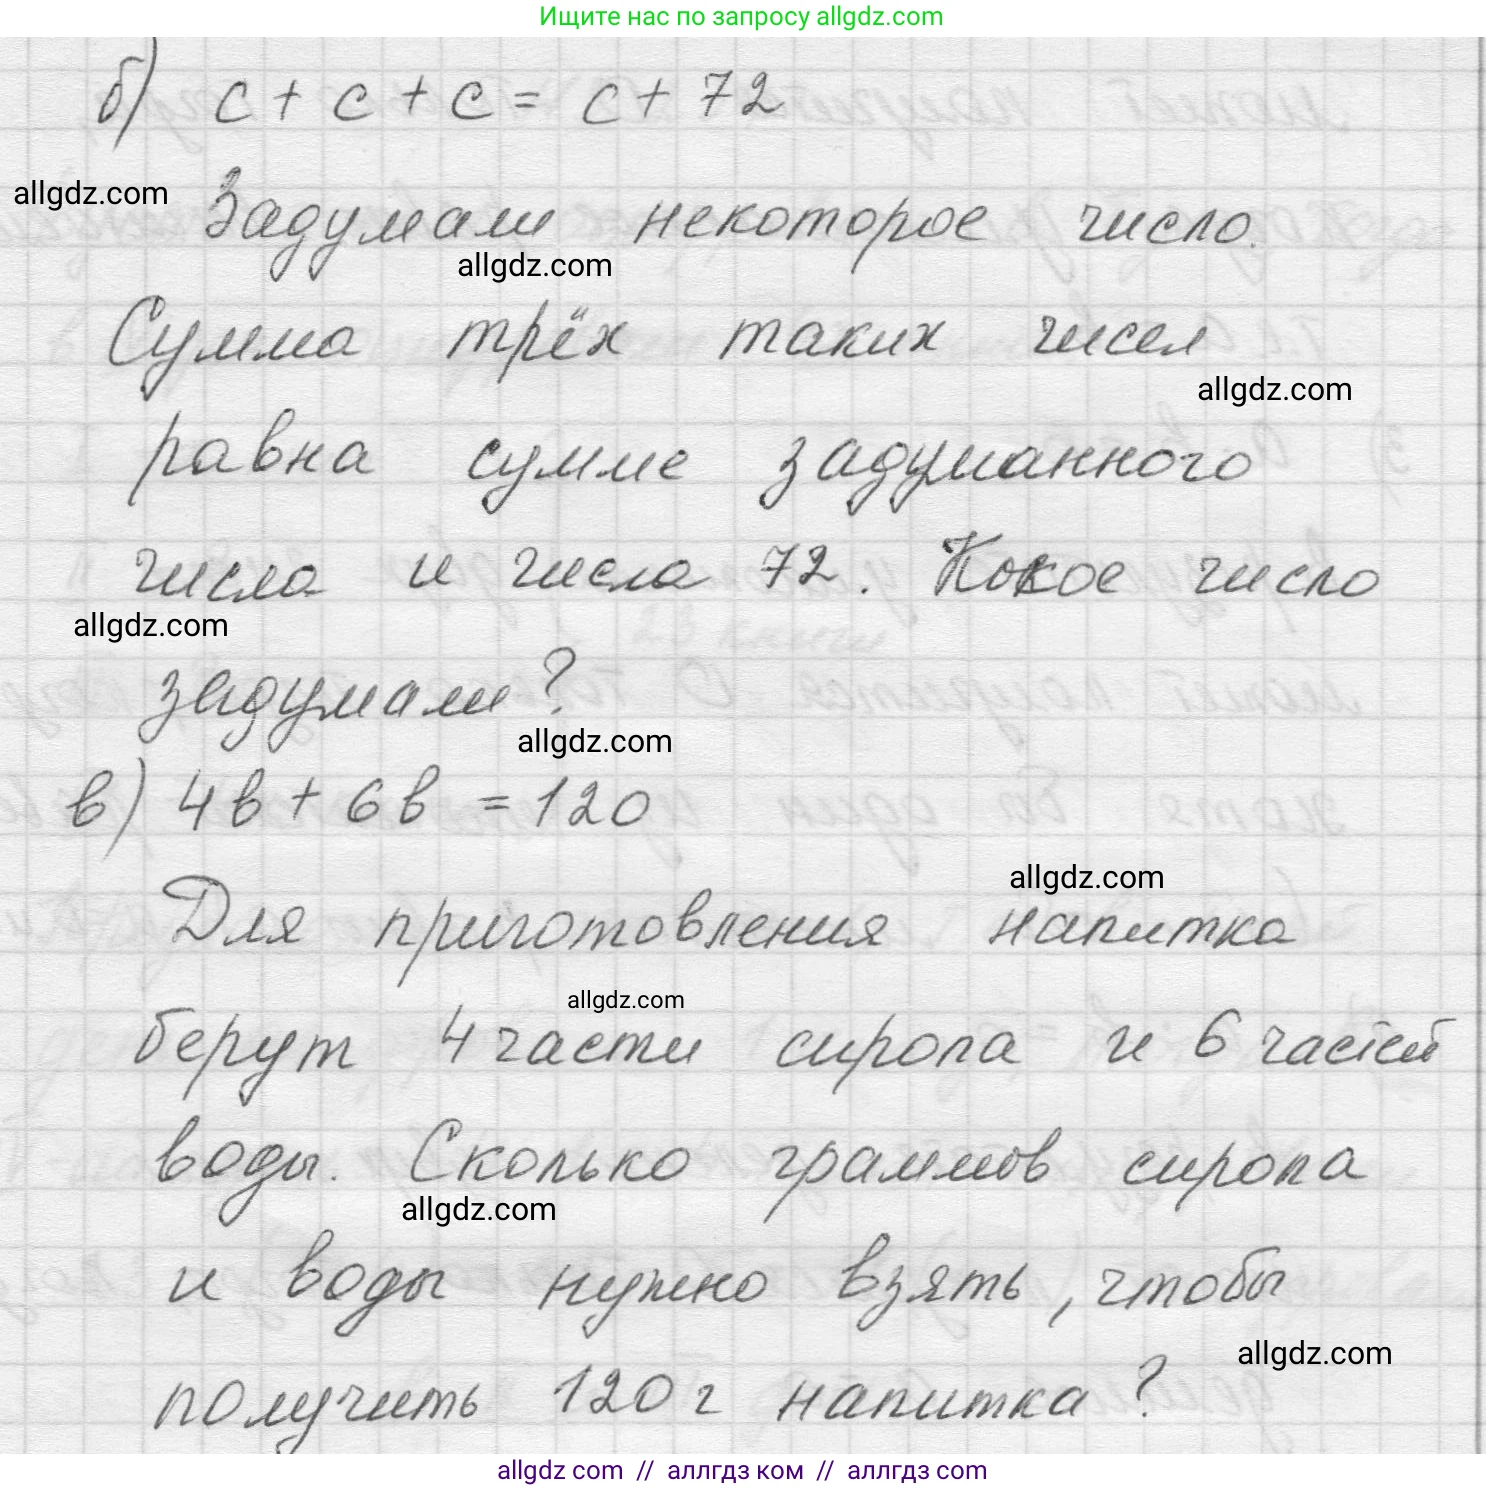 Ищите нас по запросу allgdz.com
б) c + c + c = c + 72
allgdz.com
Задумали некоторое число.
allgdz.com
Сумма трёх таких чисел
allgdz.com
равна сумме задуманного
числа и числа 72. Какое число
allgdz.com
задумали?
allgdz.com
в) 4в + 6в = 120
allgdz.com
Для приготовления напитка
allgdz.com
берут 4 части сиропа и 6 частей
воды. Сколько граммов сиропа
allgdz.com
и воды нужно взять, чтобы
allgdz.com
получить 120 г напитка?
allgdz com // аллгдз ком // аллгдз com